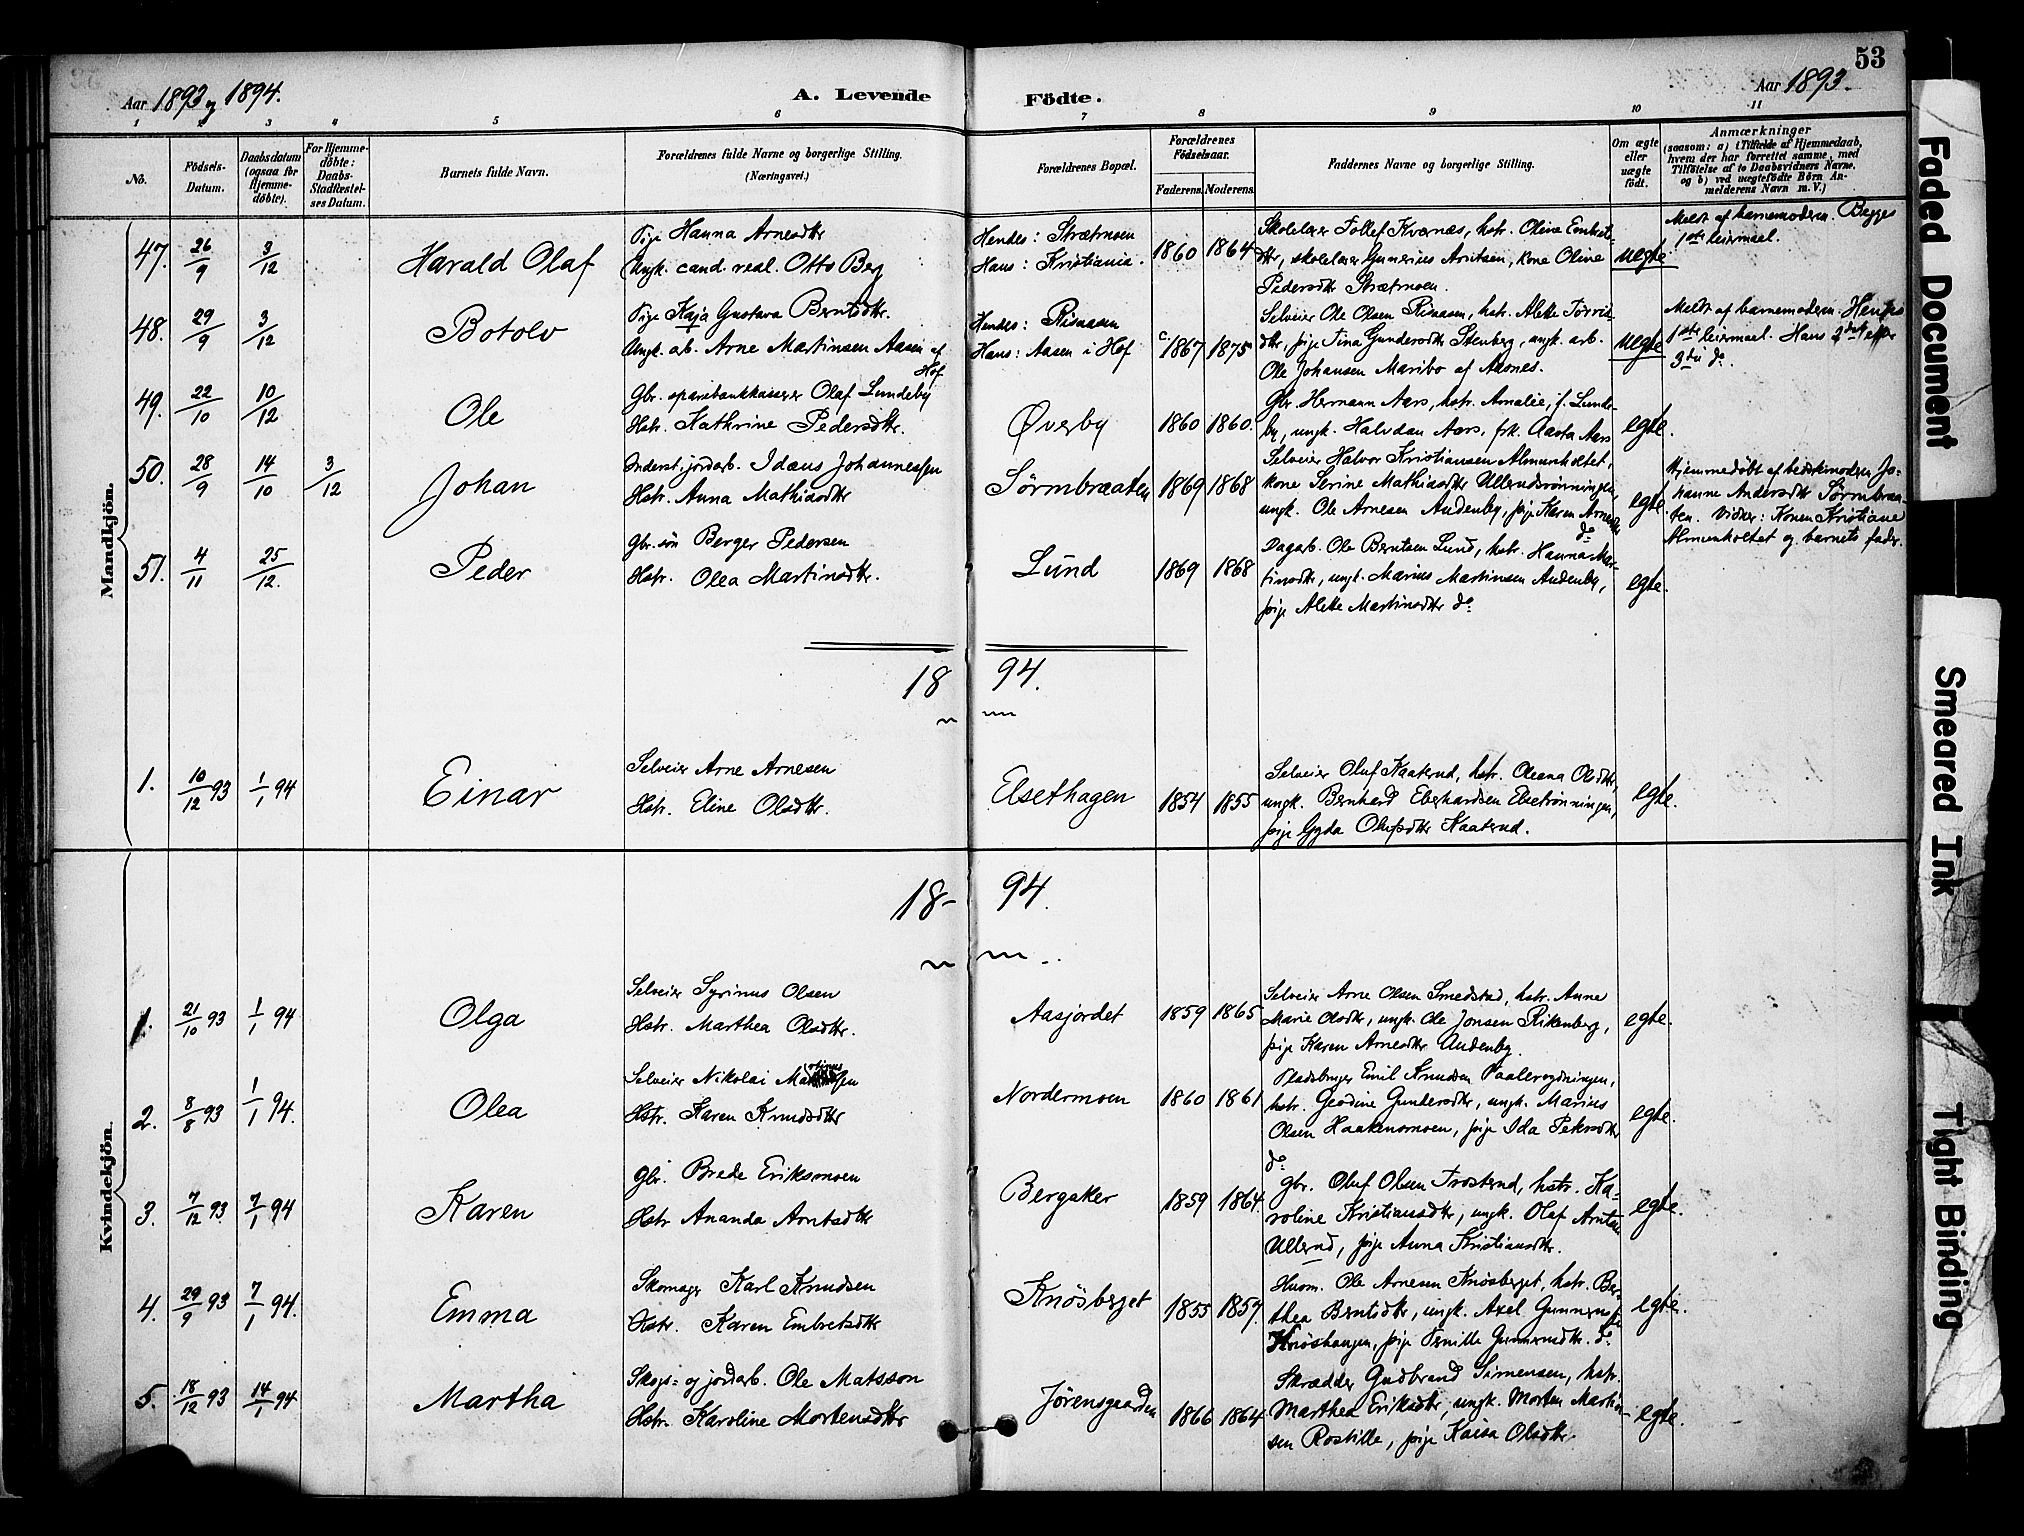 53
Aar 1893 og 1894.
A. Levende
Födte.
Aar 1893.
1 2 3 4 5 6 7 8 9 10 11
No.
Födsels-
Datum.
Daabsdatum
(ogsaa for
Hjemme-
døbte).
For Hjemme-
døbte:
Daabs-
Stadfestel-
ses Datum.
Barnets fulde Navn.
Forældrenes fulde Navne og borgerlige Stilling.
(Næringsvei.)
Forældrenes Bopæl.
Forældrenes
Födselsaar.
Faderens. Moderens.
Faddernes Navne og borgerlige Stilling.
Om ægte
eller
uægte
født.
Anmærkninger
(saasom: a) i Tilfælde af Hjemmedaab,
hvem der har forrettet samme, med
Tilföielse af to Daabsvidners Navne,
og b) ved uægtefödte Börn An-
melderens Navn m. V.)
Mandkjön.
47. 26/9 3/12 Harald Olaf
Pige Hanna Arnesdtr
Ungk. cand. real. Otto Berg
Hendes: Strætmoen
Hans: Kristiania.
1860 1864
Skolelærer Tollef Kvernæs, hstr. Oline Embret-
dtr, skolelærer Gunerius Arntsen, kone Oline
Pedersdtr Strætmoen.
uegte
Meldt af barnemoderen. Begges
1ste leiermaal.
48. 29/9 3/12 Botolv
Pige Kaja Gustava Berntsdtr.
Ungk. arb. Arne Martinsen Aasen af
Hof.
Hendes: Risaasen
Hans: Aasen i Hof
c. 1867 1875
Selveier Ole Olsen Risaasen, hstr. Alette Torris-
dtr, pige Tina Gundersdtr Stenberg, ungk. arb.
Ole Johansen Maribo af Aasnes.
uegte
Meldt af barnemoderen. Hendes
1ste leiermaal. Hans 2det eller
3die do.
49. 22/10 10/12 Ole
Gbr. sparebankkasserer Olaf Lundeby
Hstr. Kathrine Pedersdtr.
Øverby
1860 1860.
Gbr. Hermann Aars, hstr. Amalie, f. Lunde-
by, ungk. Halvdan Aars, frk. Aasta Aars
egte.
50. 28/9 14/10 3/12 Johan
Inderst, jordarb. Idæus Johannessen
Hstr. Anna Mathiasdtr
Sørmbraaten
1869 1868
Selveier Halvor Kristiansen Almenholtet,
kone Serine Mathiasdtr Ullerudsrønningen,
ungk. Ole Arnesen Audenby, pige Karen Arnesdtr
do.
egte
Hjemmedøbt af bedstemoderen Jo-
hanne Andersdtr Sørmbraa-
ten. Vidner: Konen Kristiane
Almenholtet og barnets fader.
51. 4/11 25/12. Peder
Gbr. søn Berger Pedersen
Hstr. Olea Martinsdtr.
Lund
1869 1868
Dagarb. Ole Berntsen Lund, hstr. Hanna Mar-
tinsdtr, ungk. Marius Martinsen Audenby,
pige Alette Martinsdtr do.
egte.
18 94.
1. 10/12 93 1/1 94 Einar
Selveier Arne Arnesen
Hstr. Eline Olsdtr.
Elsethagen
1854 1855
Selveier Oluf Kaaterud, hstr. Oleana Olsdtr,
ungk. Bernhard Eberhardsen Elsetrønningen,
pige Gyda Olufsdtr Kaaterud.
egte.
Kvindekjön.
18- 94.
1. 21/10 93 1/1 94 Olga
Selveier Syrinus Olsen
Hstr. Marthea Olsdtr.
Aasjordet
1859 1865
Selveier Arne Olsen Smedstad, hstr. Anne
Marie Olsdtr, ungk. Ole Jonsen Rikenberg,
pige Karen Arnesdtr Audenby.
egte.
2. 8/8 93 1/1 94. Olea
Selveier Nikolai
Hstr. Karen Knudsdtr
Nordermoen
1860 1861
Pladsbruger Emil Knudsen Paalerydningen,
hstr. Geodine Gundersdtr, ungk. Marius
Olsen Haakensmoen, pige Ida Petersdtr
do.
egte.
3. 7/12 93 7/1 94 Karen
Gbr. Brede Eriksmoen
Hstr Ananda Arntsdtr
Bergsker
1859 1864.
Gbr. Oluf Olsen Trosterud, hstr. Ka-
roline Kristiansdtr, ungk. Olaf Arntsen
Ullerud, pige Anna Kristiansdtr.
egte.
4. 29/9 93 7/1 94. Emma
Skomager Karl Knudsen
Hstr. Karen Embretsdtr
Knøsberget
1855 1857.
Husm. Ole Arnesen Knøsberget, hstr. Ber-
thea Berntsdtr, ungk. Axel Gunnersen
Knøshaugen, pige Pernille Gunnersdtr. do.
egte.
5. 18/12 93 14/1 94 Martha
Skogs- og jordarb. Ole Matsson
Hstr. Karoline Mortensdtr
Jørensgaarden
1866 1864
Skrædder Gudbrand Simensen, hstr.
Marthea Eriksdtr, ungk. Morten Martin-
sen Rostille, pige Kaisa Olsdtr.
egte.
Faded Document
Smeared Ink
Tight Binding